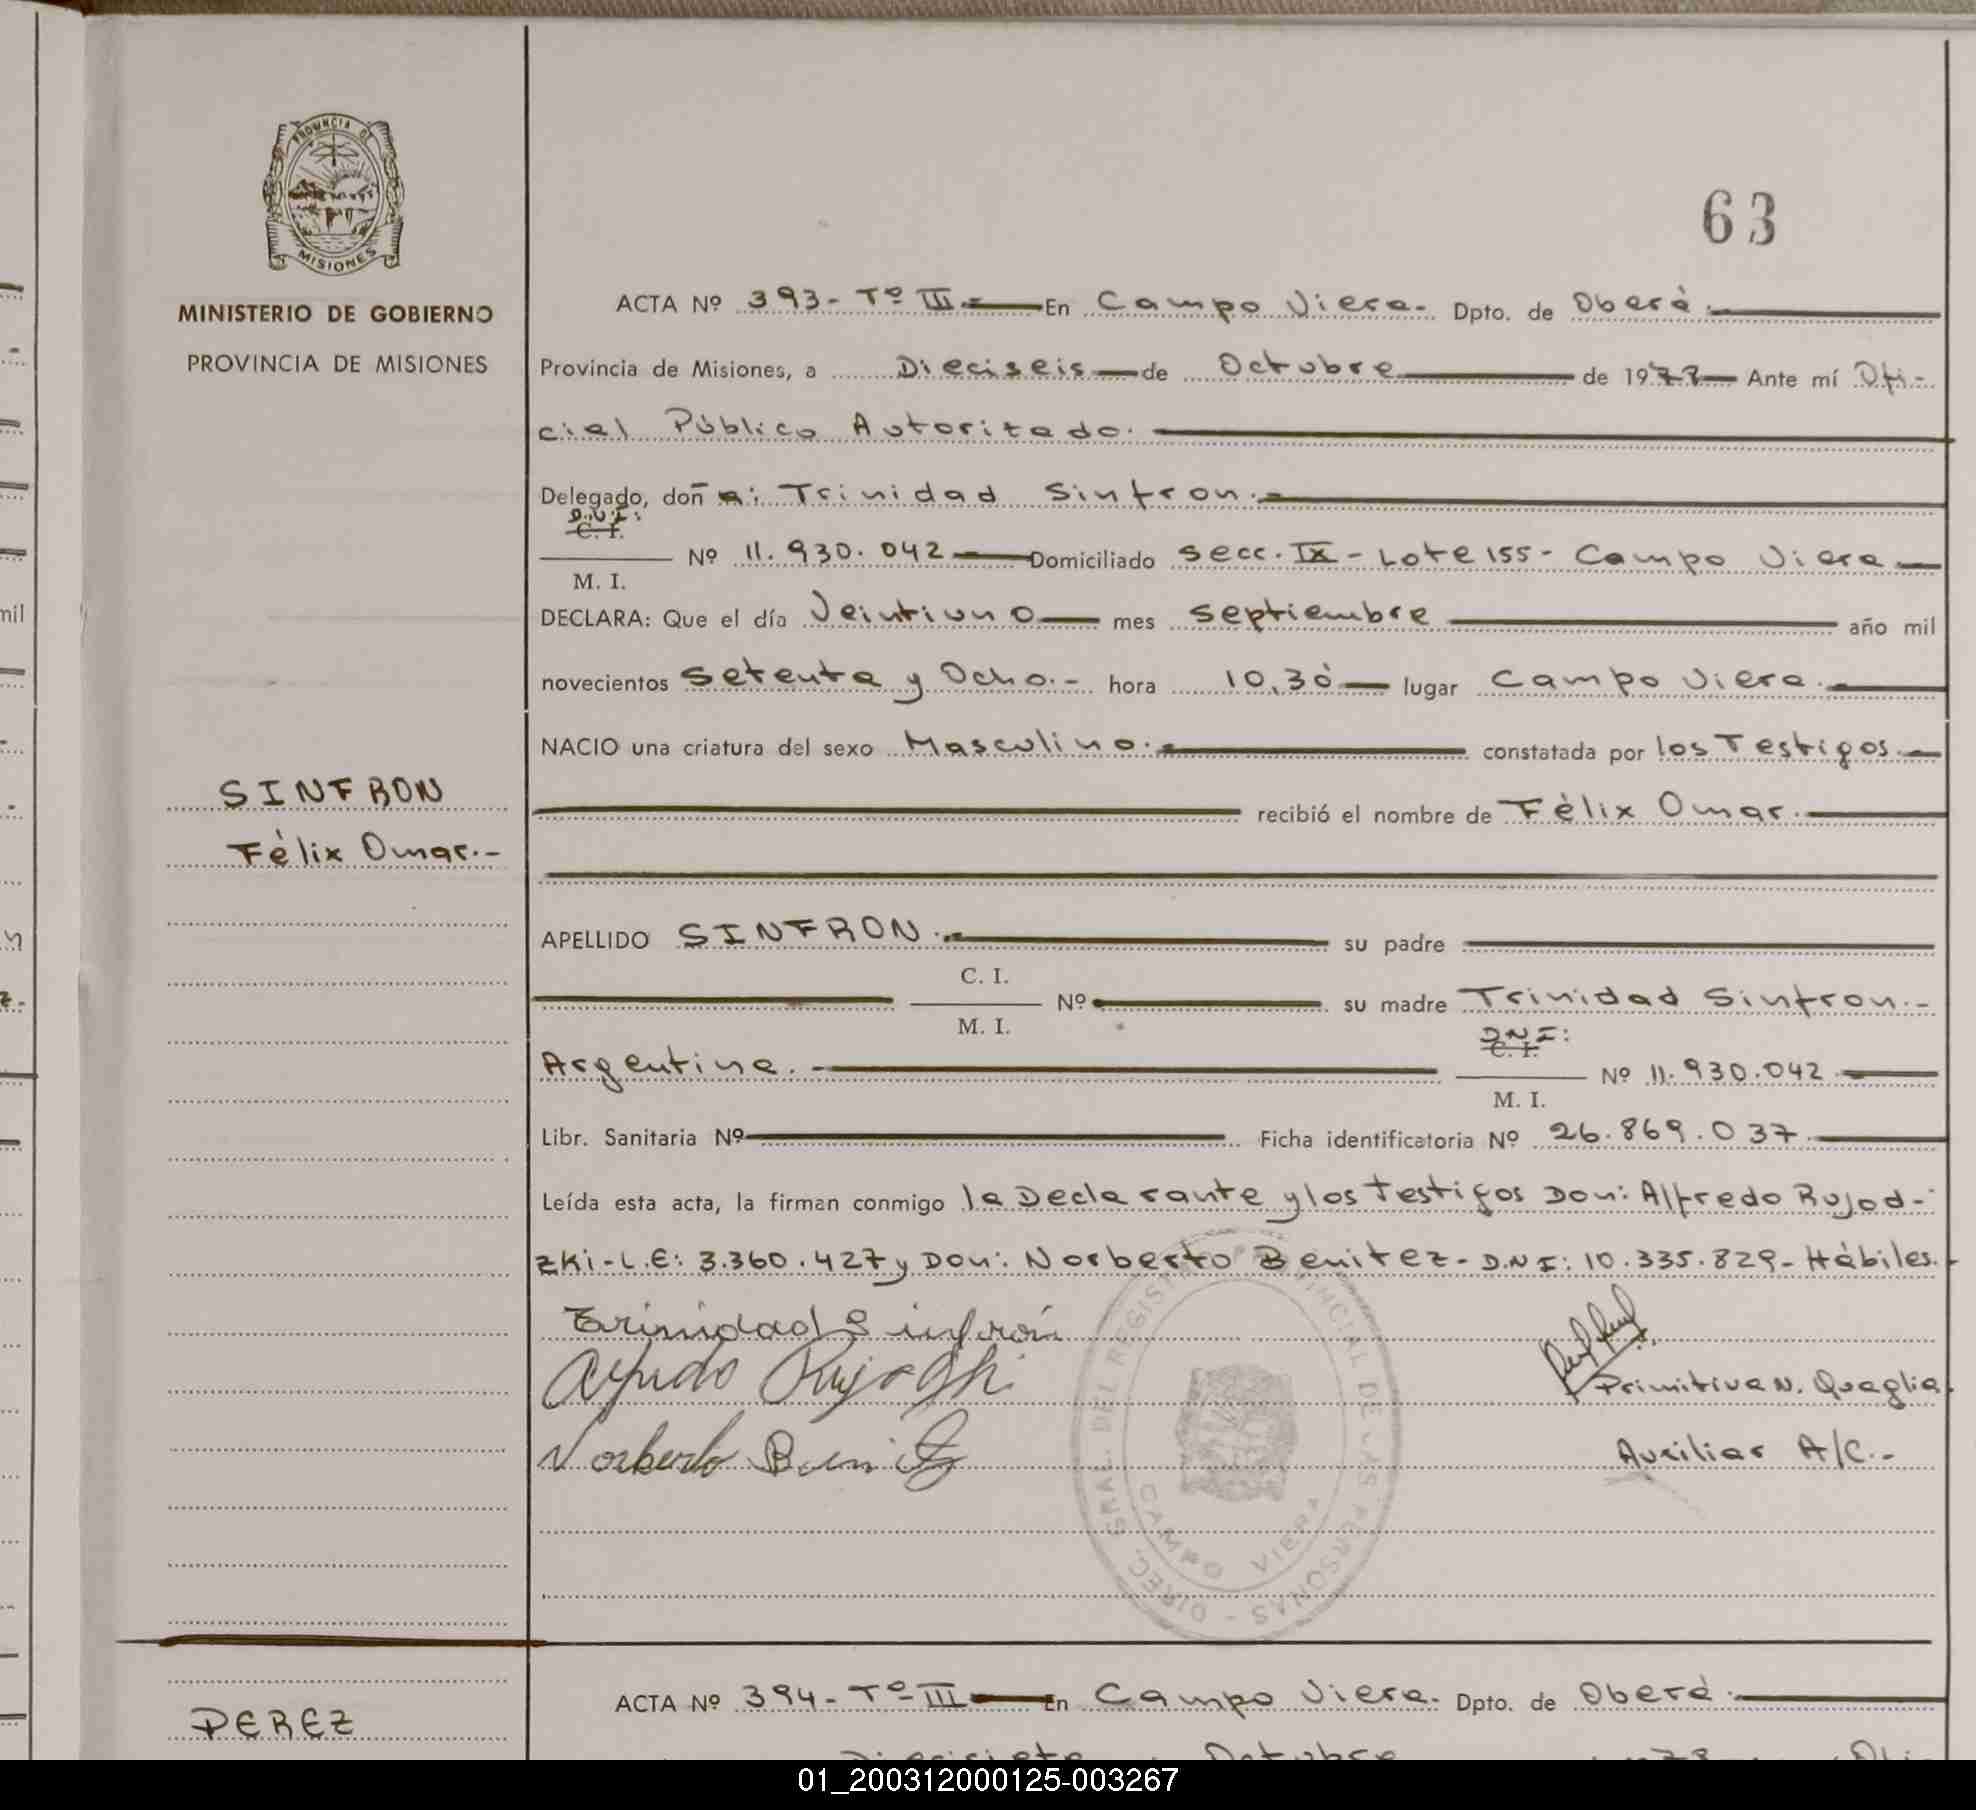 PROVINCIA DE
MISIONES
MINISTERIO DE GOBIERNO
PROVINCIA DE MISIONES
63
ACTA Nº 393- Tº III.- En Campo Viera.- Dpto. de Oberá.-
Provincia de Misiones, a Dieciseis de Octubre de 1978 Ante mí Ofi-
cial Público Autorizado.
Delegado, doña: Trinidad Sinfron.-
D.N.I:
C. I.
Nº 11.930.042 Domiciliado Secc. IX - Lote 155 - Campo Viera
M. I.
DECLARA: Que el día Veintiuno mes Septiembre año mil
novecientos Setenta y Ocho.- hora 10,30 lugar Campo Viera.-
NACIO una criatura del sexo Masculino.- constatada por los Testigos.-
SINFRON
recibió el nombre de Félix Omar.-
Félix Omar.-
APELLIDO SINFRON.- su padre
C. I.
Nº su madre Trinidad Sinfron.-
M. I.
D.N.I:
C. I.
Argentina.- Nº 11.930.042
M. I.
Libr. Sanitaria Nº Ficha identificatoria Nº 26.869.037.
Leída esta acta, la firman conmigo la Declarante y los Testigos Don: Alfredo Rujod-
zki-L.E: 3.360.427 y Don: Norberto Benitez- D.N.I: 10.335.829- Hábiles.-
Trinidad Sinfrón
Alfredo
Primitiva N. Quaglia.
Norberto Benitez
Auxiliar A/C.-
DIREC. GRAL. DEL REGISTRO PROVINCIAL DE LAS PERSONAS -
CAMPO VIERA
ACTA Nº 394- Tº III En Campo Viera.- Dpto. de Oberá.-
PEREZ
Diecisiete Octubre 78
01_200312000125-003267